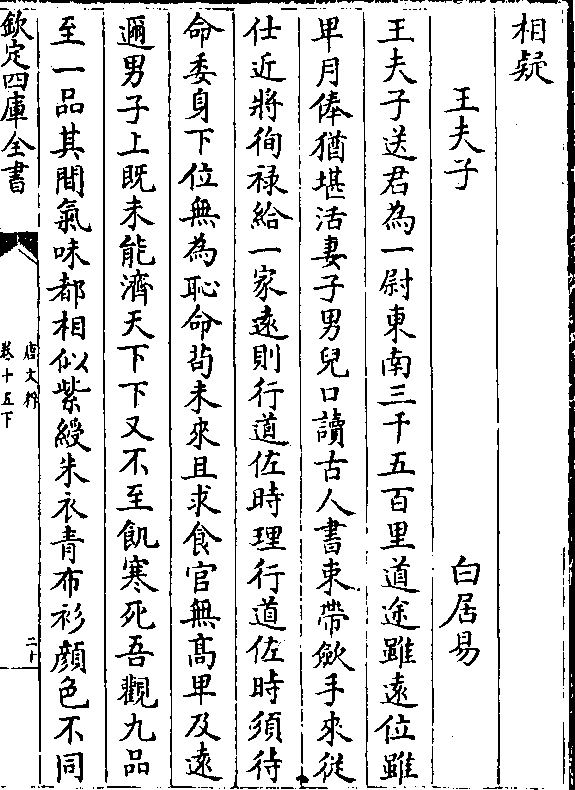 相疑
王夫子 白居易
王夫子送君為一尉東南三千五百里道途雖遠位雖
卑月俸猶堪活妻子男兒口讀古人書束帶斂手來從
仕近將徇禄給一家遠則行道佐時理行道佐時須待
命委身下位無為恥命茍未來且求食官無髙卑及逺
邇男子上既未能濟天下下又不至飢寒死吾觀九品
至一品其間氣味都相似紫綬朱衣青布衫顔色不同
欽定四庫全書
唐文粹
卷十五下
二十